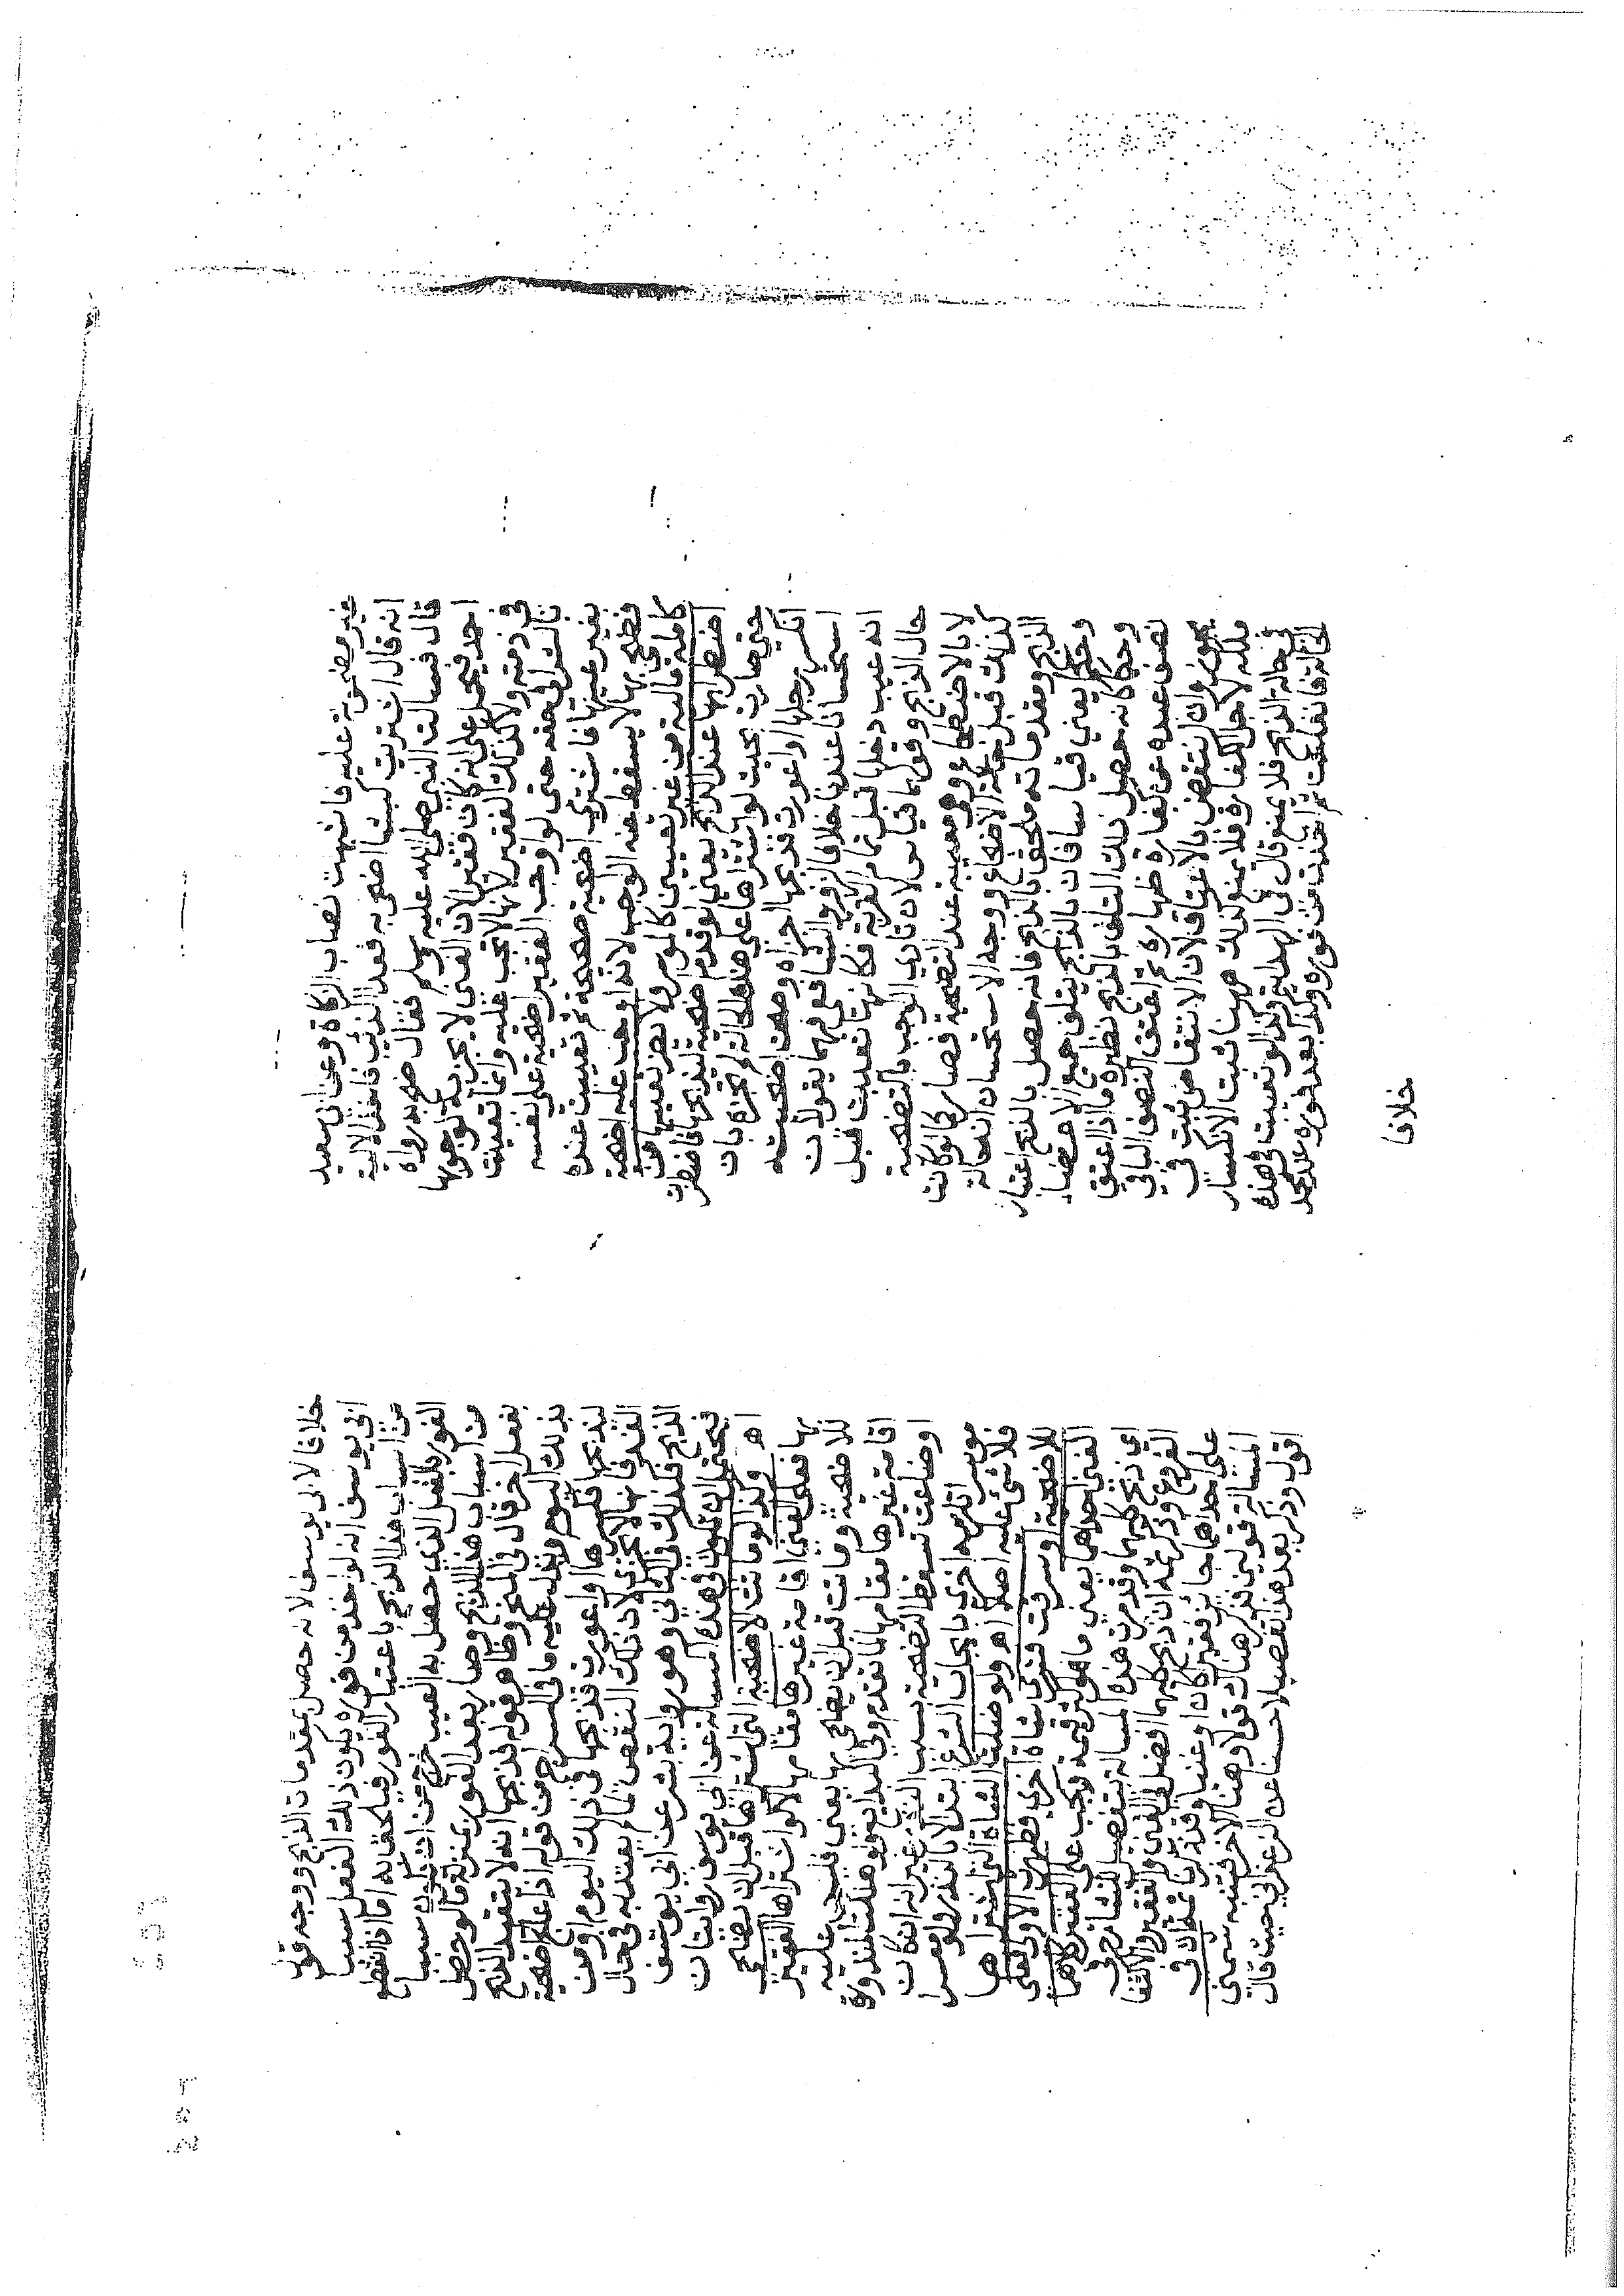 غير مضمونة عليه فاشبهت نصاب الزكاة وعن ابي سعيد
انه قال اشتريت كبشا اضحي به فعدا الذئب فاخذ الالية
قال فسالت النبي صلى الله عليه وسلم فقال ضح به رواه
احمد فيحمل على انه كان فقيرا لان الغني لا يجزيه لوجوبها
في ذمته ولا كذلك الفقير لانها لا تجب عليه وانما تعينت
بالشرا في حقه حتى لو اوجب الفقير اضحية على نفسه
بغير عينها فاشترى اضحية صحيحة ثم تعيبت عنده
فضحى بها لا يسقط عنه الواجب لانه اوجب عليه اضحية
كاملة فالية من غير تعيين كالموسر ولا يضر تعيبها من
اضطرابها عند الذبح يعني لو قدم اضحية ليذبحها فاضطربت
حتى صارت بحيث لو اشتراها على هذه الحالة لم يجزه بان
انكسر رجلها او اعورت فذبحها اجزاه وصحت اضحيته
استحسانا عندنا خلافا لزفر والشافعي فهما يقولان
انه عيب دخلها قبل تمام القربة فكانها تعيبت قبل
حال الذبح وقولهما قياس لان تادي الواجب بالتضحية
لا بالاضطجاع وهي معيبة عند التضحية فصار كما لو كانت
كذلك قبل حالة الاضجاع ووجه الاستحسان ان حالة
الذبح ومقدماته ملحق بالذبح فانه حصل بالذبح اعتبار
وحكما يعني قياسا فان بالذبح يتلف جميع الاعضاء
وحكما كانه حصل ذلك التلف بالذبح نظيره ما اذا اعتق
نصف عبده عن كفارة ظهاره ثم اعتق النصف الباقي
يجوز وان انتقض بالاعتاق لان الانتقاص ثبت في
ملكه لاجل الكفارة فلا يمنع كذلك ههنا ثبت الانكسار
في حالة الذبح فلا يمنع قال في الهداية وكذا لو تعيبت في هذه
الحالة فانفلتت ثم اخذت من فوره وكذا بعد فوره عند محمد
خلافا
خلافا لابي يوسف لانه حصل بمقدمات الذبح ووجه قول
ابي يوسف انه لو اخذ من فوره يكون ذلك الفعل سببا
من اسباب هذا الذبح باعتبار الفور فيلحق به اما اذا انقطع
الفور بالفعل الذي حصل به العيب خرج من ان يكون سببا
من اسباب هذا الذبح وصار بعد الفور بمنزلة ما لو حصل
بفعل اخر قال في المنح وظاهر قوله فذبحها انه لا يتقيد الذبح
بذلك اليوم ويدل عليه ما في السراج من قوله اذا اضجع اضحية
ليذبحها فكسرها او اعورت فذبحها في ذلك اليوم او من
الغد فانها تجزي لان ذلك النقص لما لم يعتد به في حال
الذبح فكذلك في الثاني وهو رواية بشر عن ابي يوسف
فيحتمل ان يكون في هذه المسالة عن ابي يوسف روايتان
اه وكذا لو ماتت الاضحية التي اشتراها قبل ان يضحي
بها فعلى الغني اقامة غيرها مقامها لا لو اشتراها الفقير
للاضحية وماتت قبل ان يضحي بها يعني فليس عليه
اقامة غيرها مقامها لما تقدم وفي البدايع ولو هلكت المنذورة
او ضاعت تسقط التضحية بسبب النذر غير انه ان كان
موسرا تلزمه اخرى بايجاب الشرع ابتداء لا بالنذر ولو معسرا
فلا شي عليه اصلا اه ولو ضلت الشاة التي اشتراها
للاضحية او سرقت فشرى شاة اخرى فظهرت الاولى فعلى
الغني احدهما يعني ما هو اكثر قيمة ويجب على الفقير كلاهما
اي ذبح كلهما وقدمت هذه المسالة بتفصيل للشارح في
الفروع وذكر ثمه ان ذبح كلهما افضل في الغني والفقير والاتفاق
على احداهما جائز فقيرا كان او غنيا وقد مر ثمه ان في
المسالة قولين فذكر هناك قولا وهنا الاخر فتنبه سيدي
اقول وذكر بعد هذا تفصيلا حسنا عن الزعفراني حيث قال